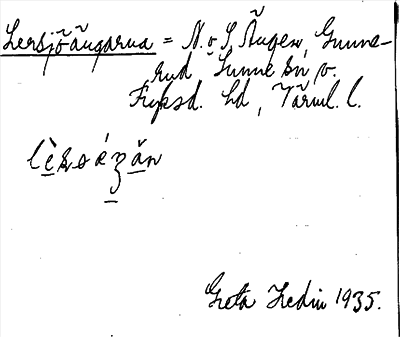 Lersjöängarna = N. o S. Ängen, Gunne-
rud Sunne sn, v.
Fryksd. hd, Värml. l.
Greta Hedin 1935.